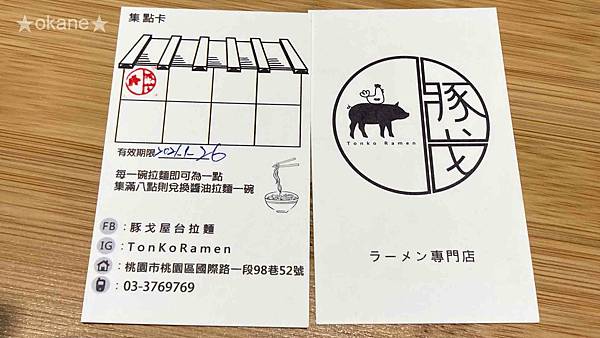 ★okane★
集點卡
有效期限2021.1.26
每一碗拉麵即可為一點
集滿八點則兌換醬油拉麵一碗
FB：豚戈屋台拉麵
IG：TonKoRamen
：桃園市桃園區國際路一段98巷52號
：03-3769769
豚戈
Tonko Ramen
ラーメン專門店